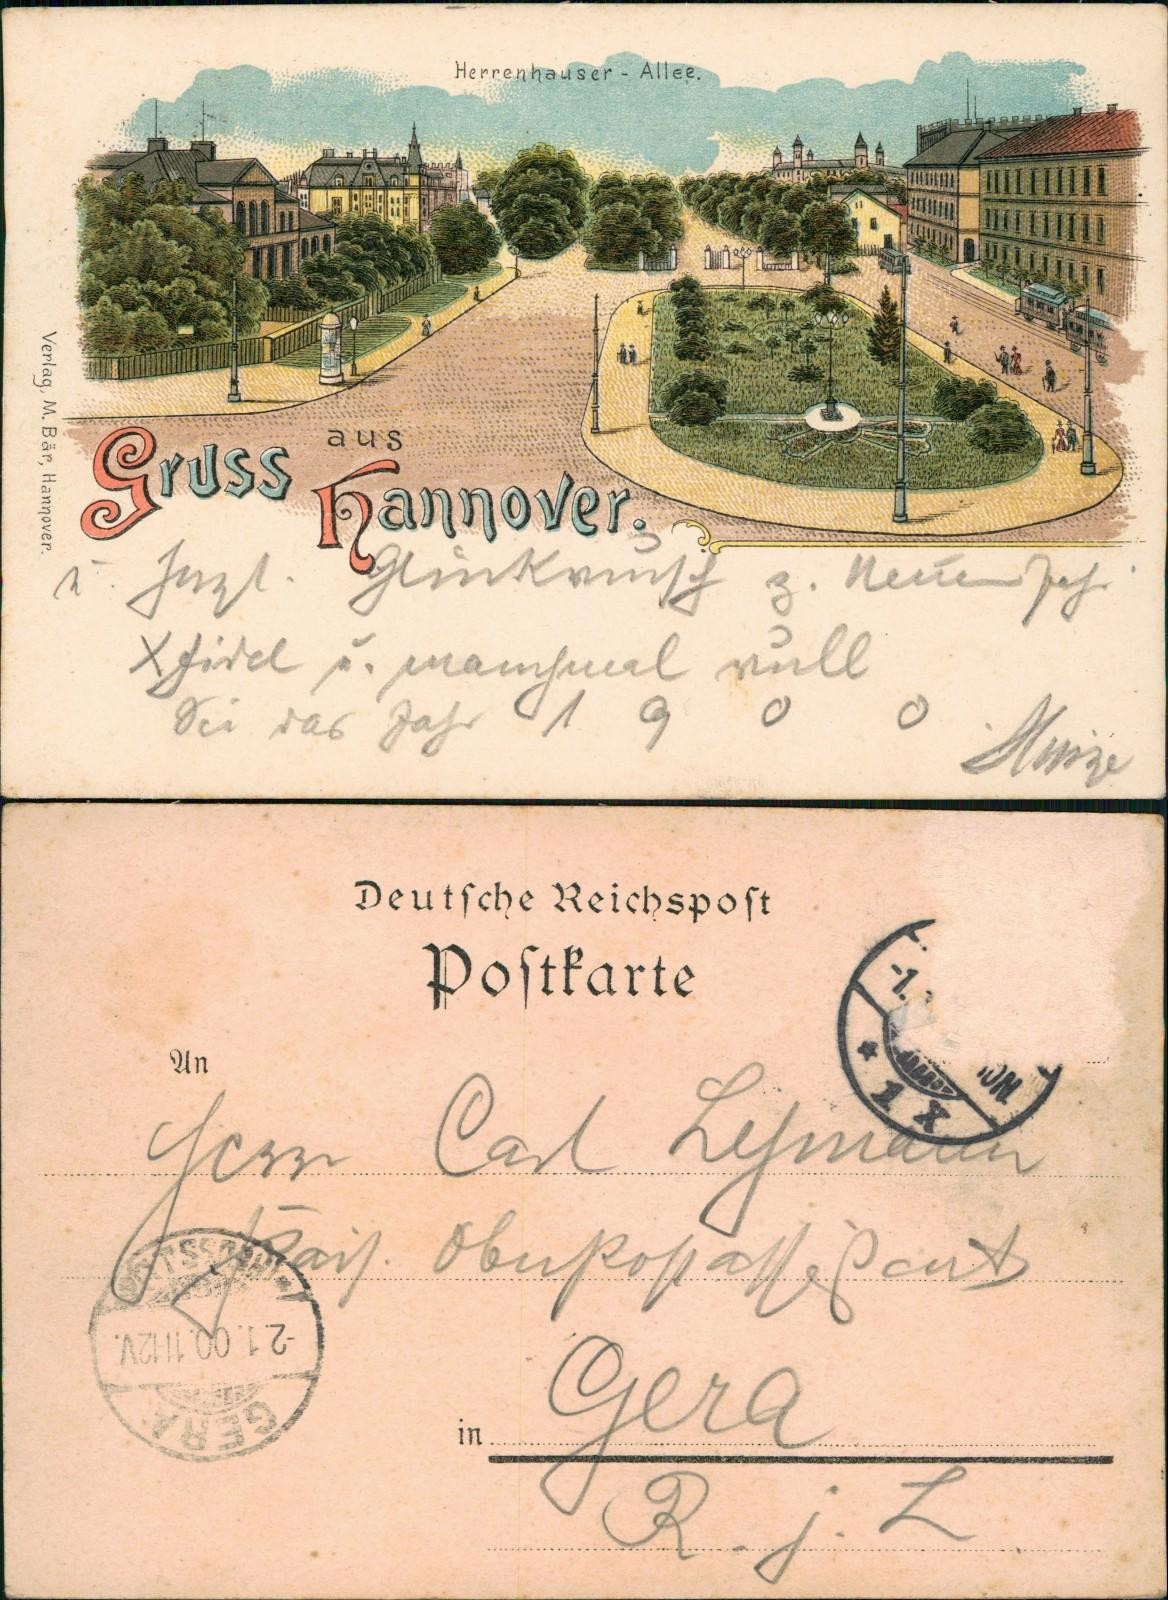 Herrenhauser - Allee.
Verlag, M. Bär, Hannover.
Gruss aus
Hannover.
Herzl. Glückwunsch z. Neuen Jahr
Xfidel u. manchmal vull
Sei das Jahr 1900
Deutsche Reichspost
Postkarte
An
Herrn Carl Lehmann
Kais. Oberpostassistent
in Gera
R. j. L
1.
1 X
GERA
2.1.00.11-12V.